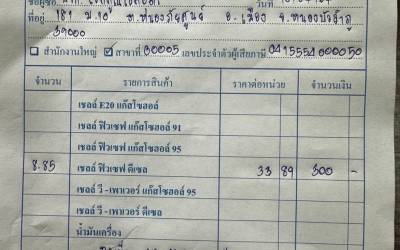 ที่อยู่ 181 ม.10 ต.หนองภัยศูนย์ อ.เมือง จ.หนองบัวลำภู
39000
สำนักงานใหญ่ ☑ สาขาที่ 00005 เลขประจำตัวผู้เสียภาษี 0415554000050
จำนวน รายการสินค้า ราคาต่อหน่วย จำนวนเงิน
เชลล์ E20 แก๊สโซฮอล์
เชลล์ ฟิวเซฟ แก๊สโซฮอล์ 91
เชลล์ ฟิวเซฟ แก๊สโซฮอล์ 95
8.85 เชลล์ ฟิวเซฟ ดีเซล 33 89 300 -
เชลล์ วี - เพาเวอร์ แก๊สโซฮอล์ 95
เชลล์ วี - เพาเวอร์ ดีเซล
น้ำมันเครื่อง